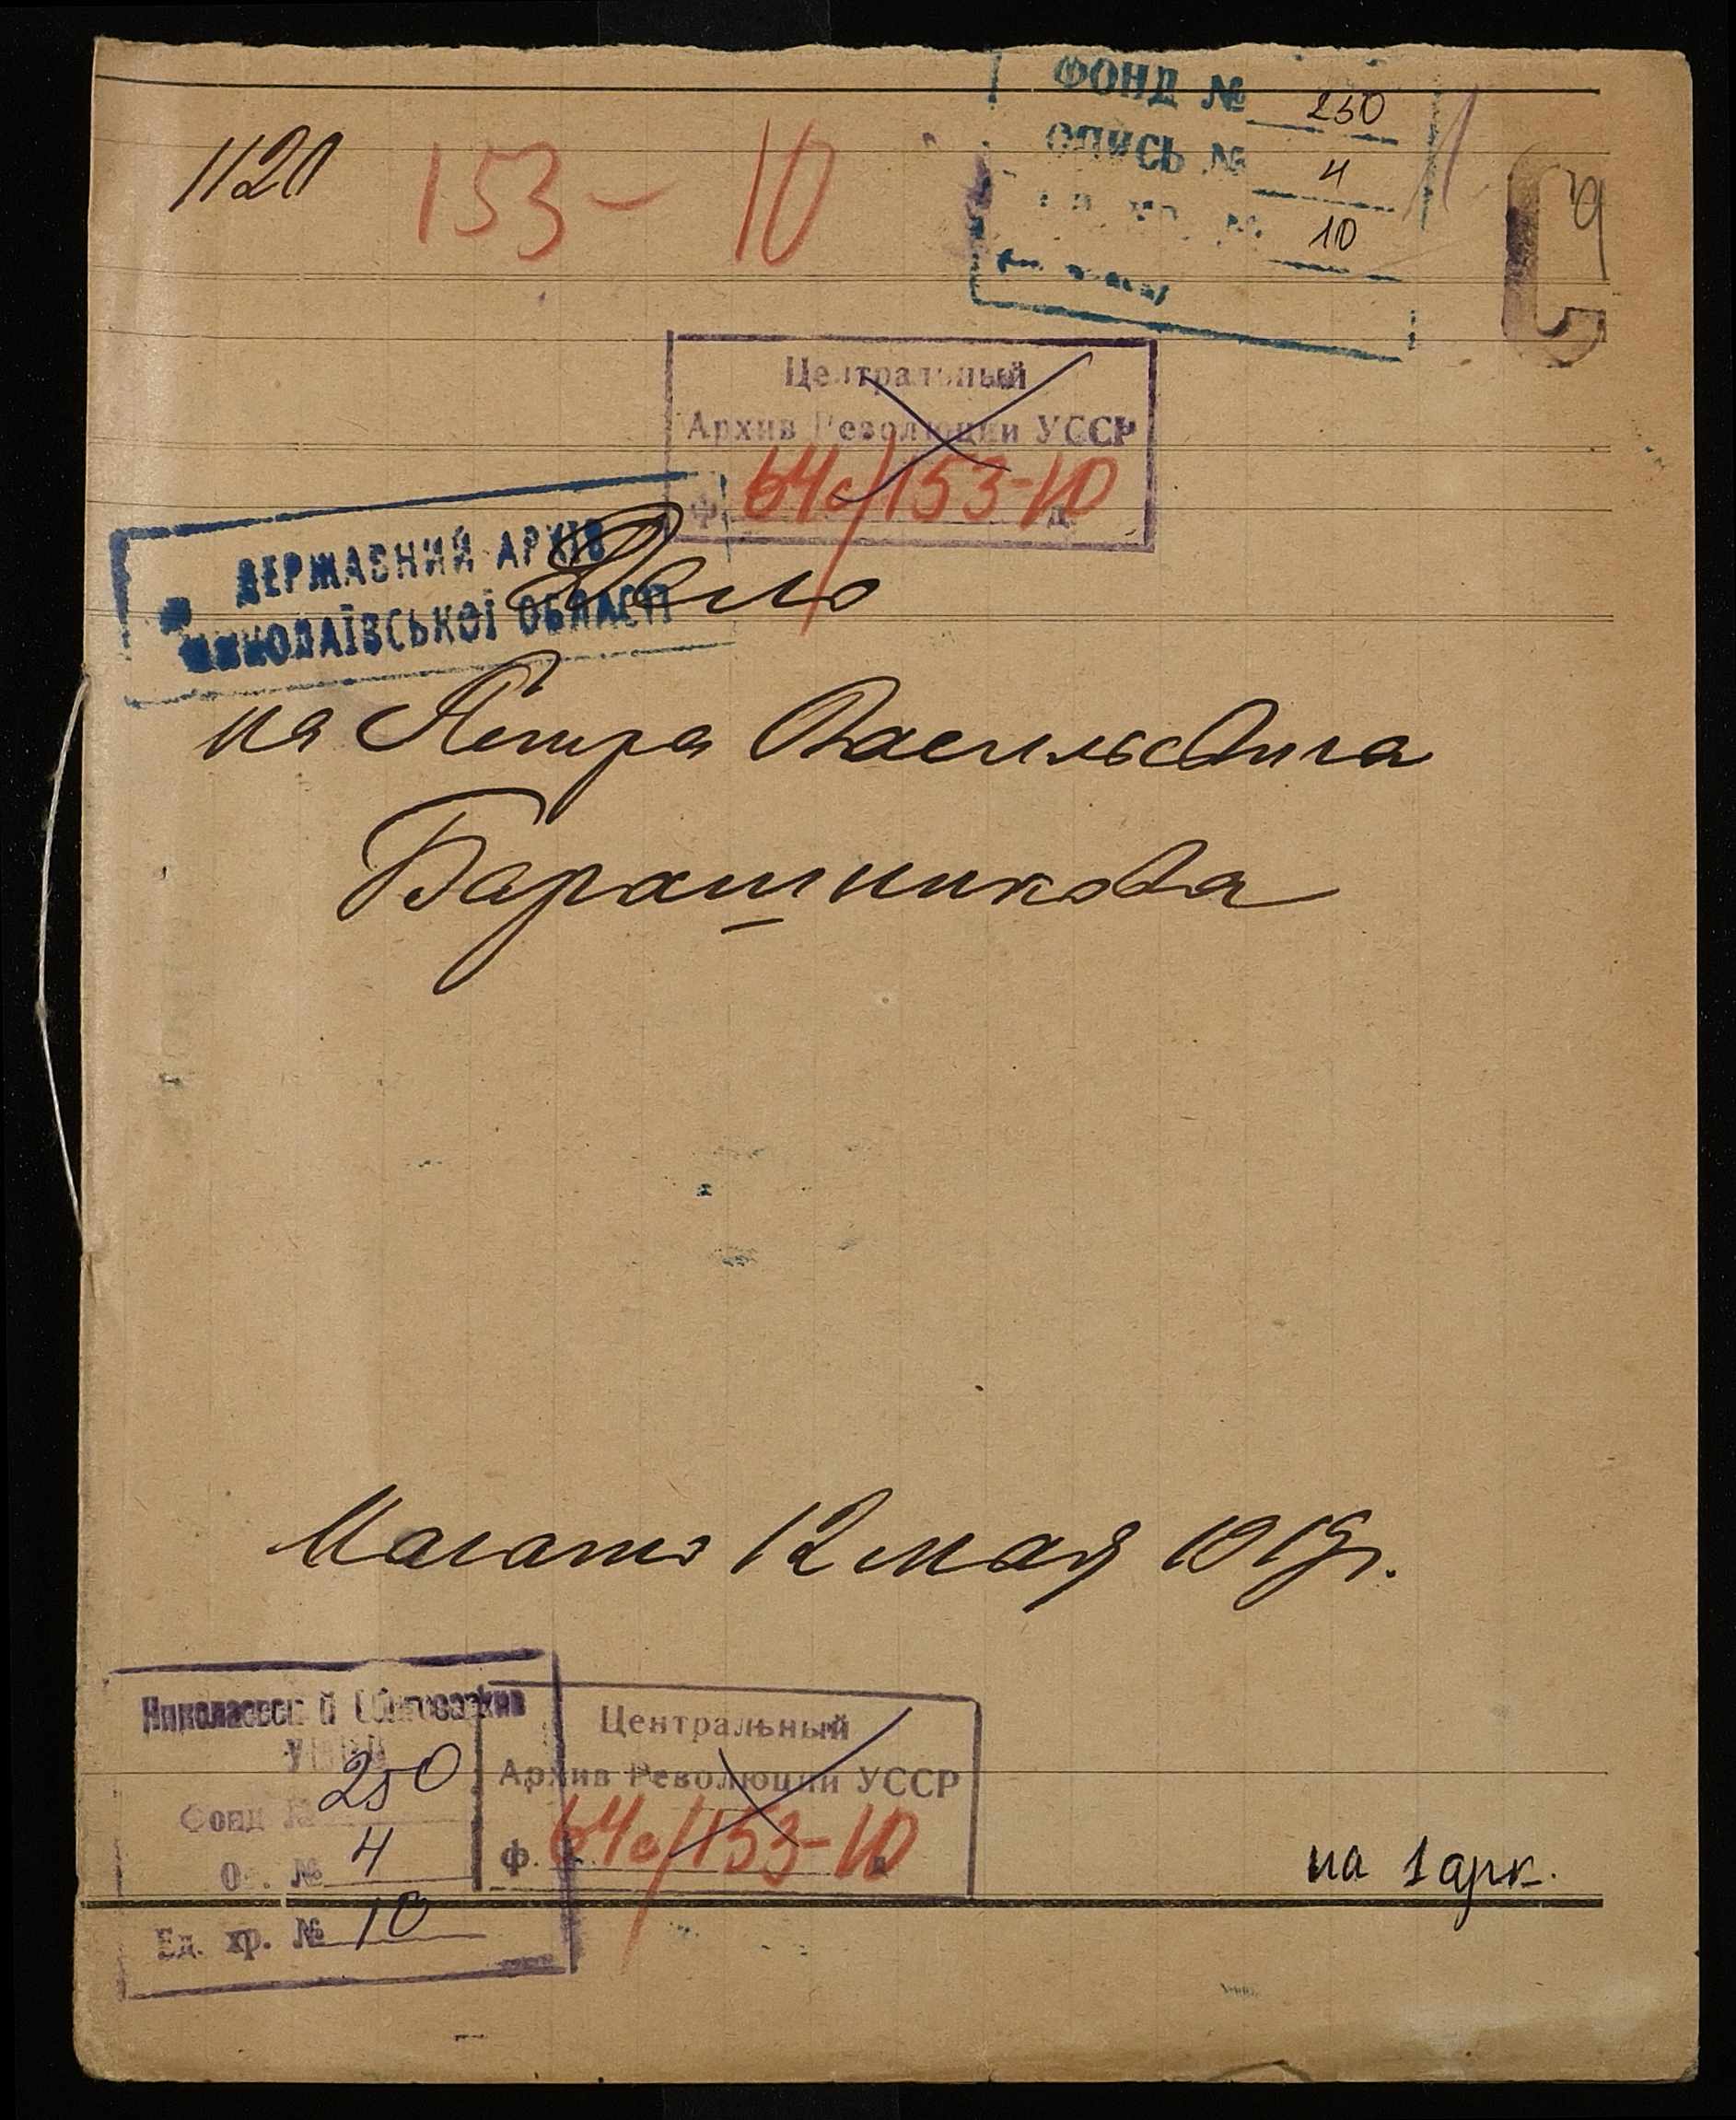 ФОНД № 250
1120 153-10
ОПИСЬ № 4
10
Центральный
Архив Революции УССР
ф. 64с/153-10 д.
ДЕРЖАВНИЙ АРХІВ
МИКОЛАЇВСЬКОЇ ОБЛАСТІ
Дело
на Петра Васильевича
Барашникова
Начато 12 мая 1919 г.
Николаевский Облгосархив
УССР
Фонд № 250
Оп. № 4
Ед. хр. № 10
Центральный
Архив Революции УССР
ф. 64с/153-10 д.
на 1 арк.